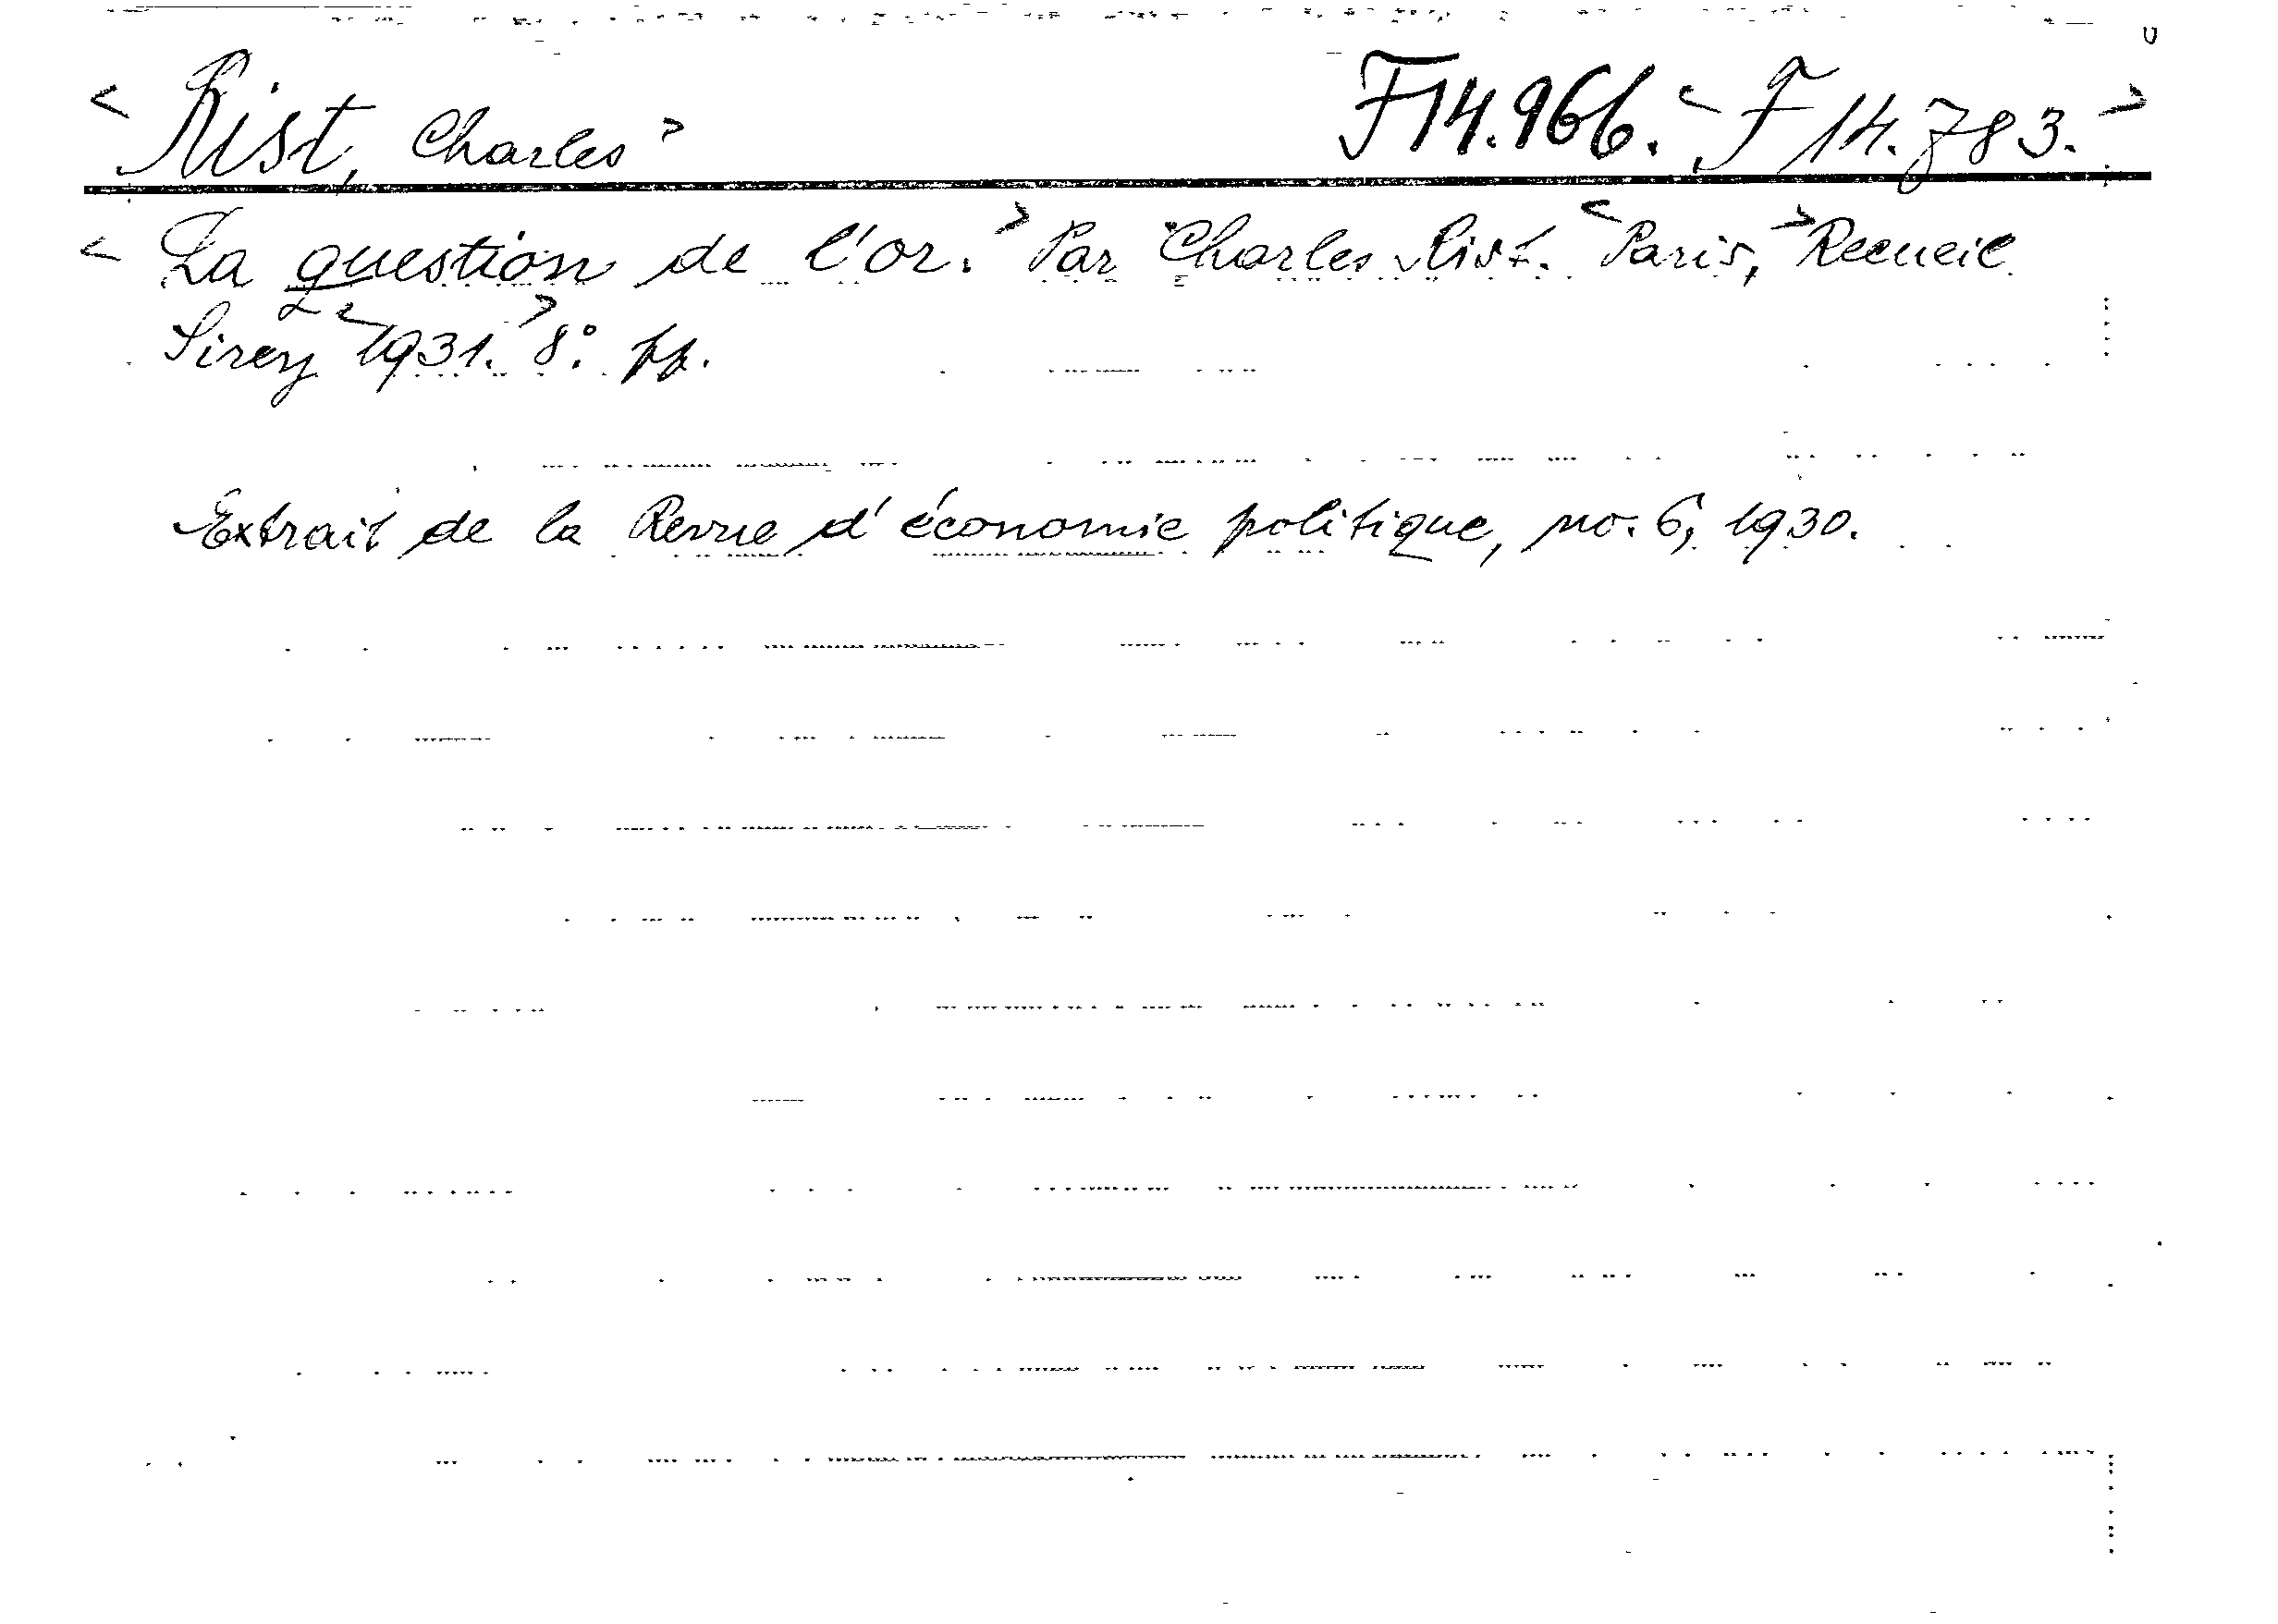 < Rist, Charles > F 14.966. < F 14.783. >
< La question de l'or. > Par Charles Rist. < Paris, > Recueil
Sirey < 1931. > 8°. pp.
Extrait de la Revue d'économie politique, no. 6, 1930.